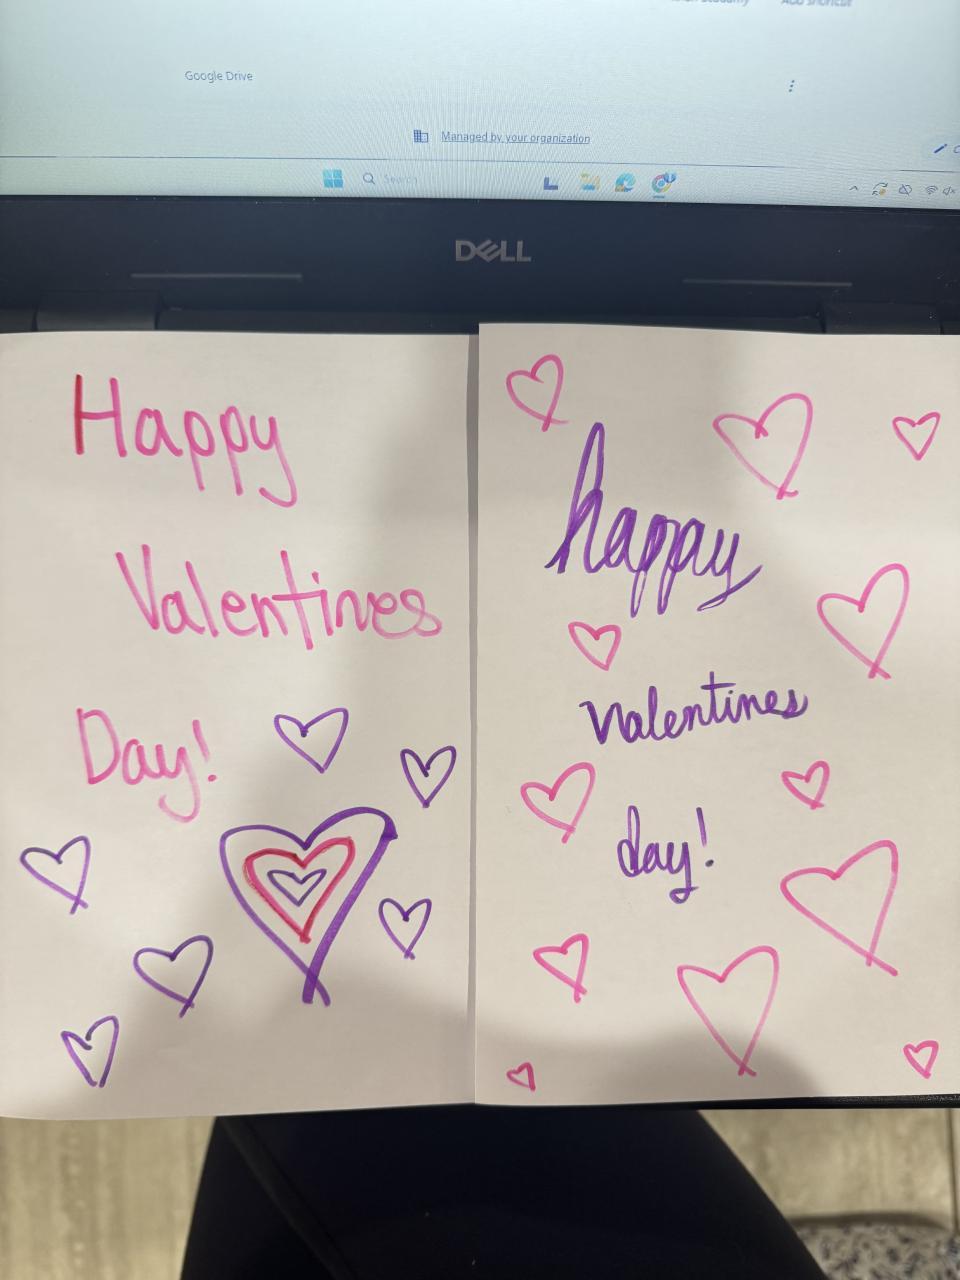 Google Drive
Managed by your organization
Search
DELL
Happy
Valentines
Day!
happy
valentines
day!